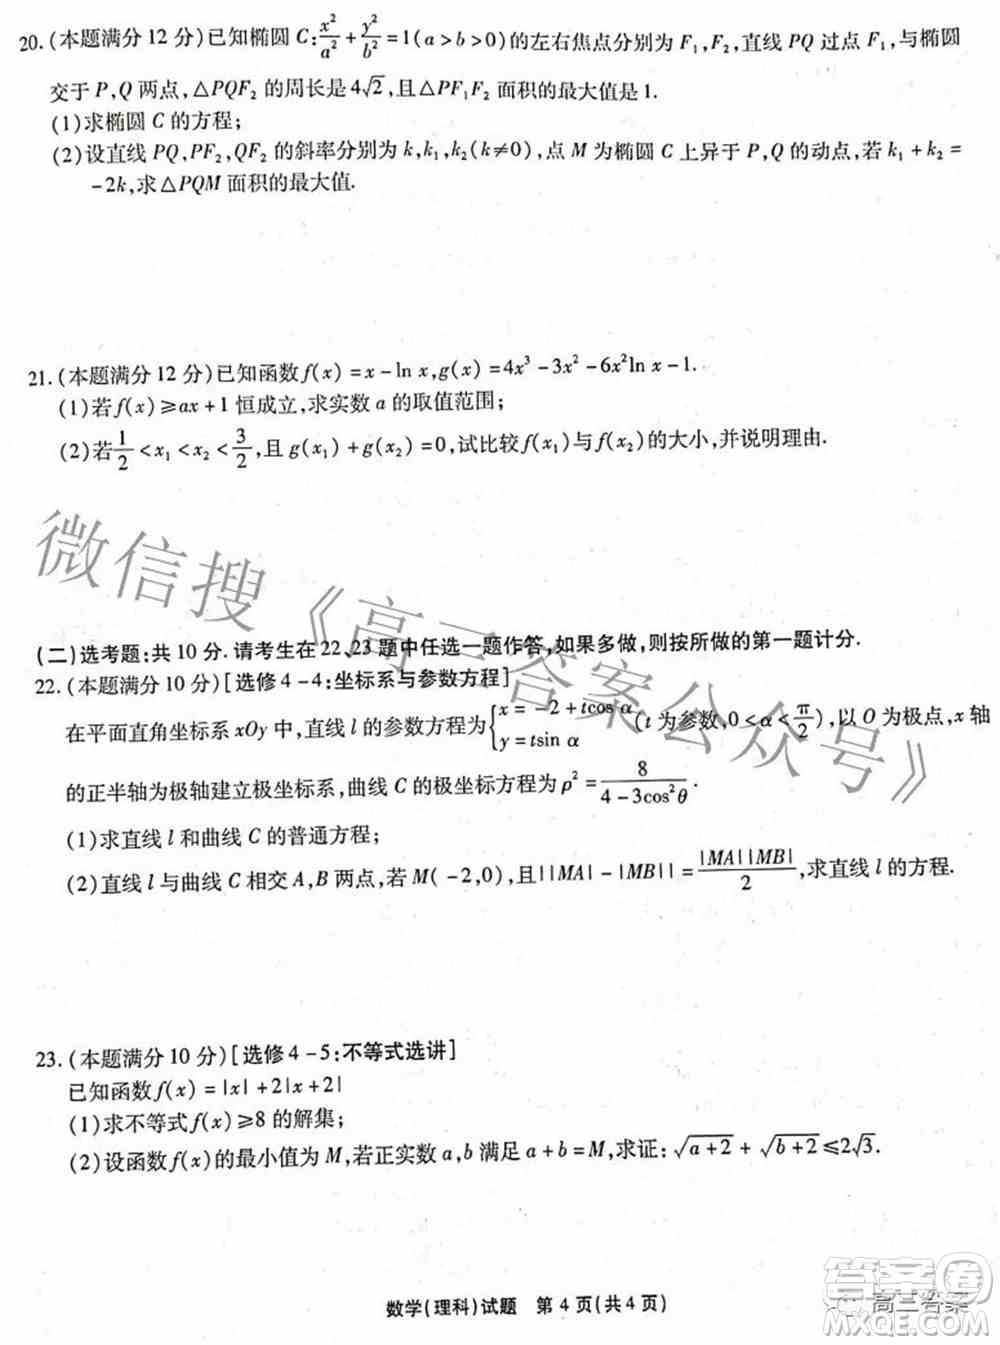 20.(本题满分12分)已知椭圆C:x²/a²+y²/b²=1(a>b>0)的左右焦点分别为F₁,F₂,直线PQ过点F₁,与椭圆
交于P,Q两点,△PQF₂的周长是4√2,且△PF₁F₂面积的最大值是1.
(1)求椭圆C的方程;
(2)设直线PQ,PF₂,QF₂的斜率分别为k,k₁,k₂(k≠0),点M为椭圆C上异于P,Q的动点,若k₁+k₂=
-2k,求△PQM面积的最大值.
21.(本题满分12分)已知函数f(x)=x-ln x,g(x)=4x³-3x²-6x²ln x-1.
(1)若f(x)≥ax+1恒成立,求实数a的取值范围;
(2)若1/2<x₁<x₂<3/2,且g(x₁)+g(x₂)=0,试比较f(x₁)与f(x₂)的大小,并说明理由.
微信搜《高三答案公众号》
(二)选考题:共10分.请考生在22、23题中任选一题作答,如果多做,则按所做的第一题计分.
22.(本题满分10分)[选修4-4:坐标系与参数方程]
在平面直角坐标系xOy中,直线l的参数方程为{x=-2+tcos α y=tsin α(t为参数,0<α<π/2),以O为极点,x轴
的正半轴为极轴建立极坐标系,曲线C的极坐标方程为ρ²=8/(4-3cos²θ).
(1)求直线l和曲线C的普通方程;
(2)直线l与曲线C相交A,B两点,若M(-2,0),且||MA|-|MB||=|MA||MB|/2,求直线l的方程.
23.(本题满分10分)[选修4-5:不等式选讲]
已知函数f(x)=|x|+2|x+2|
(1)求不等式f(x)≥8的解集;
(2)设函数f(x)的最小值为M,若正实数a,b满足a+b=M,求证:√(a+2)+√(b+2)≤2√3.
数学(理科)试题 第4页(共4页)
高三答案
答案卷
MXQE.COM